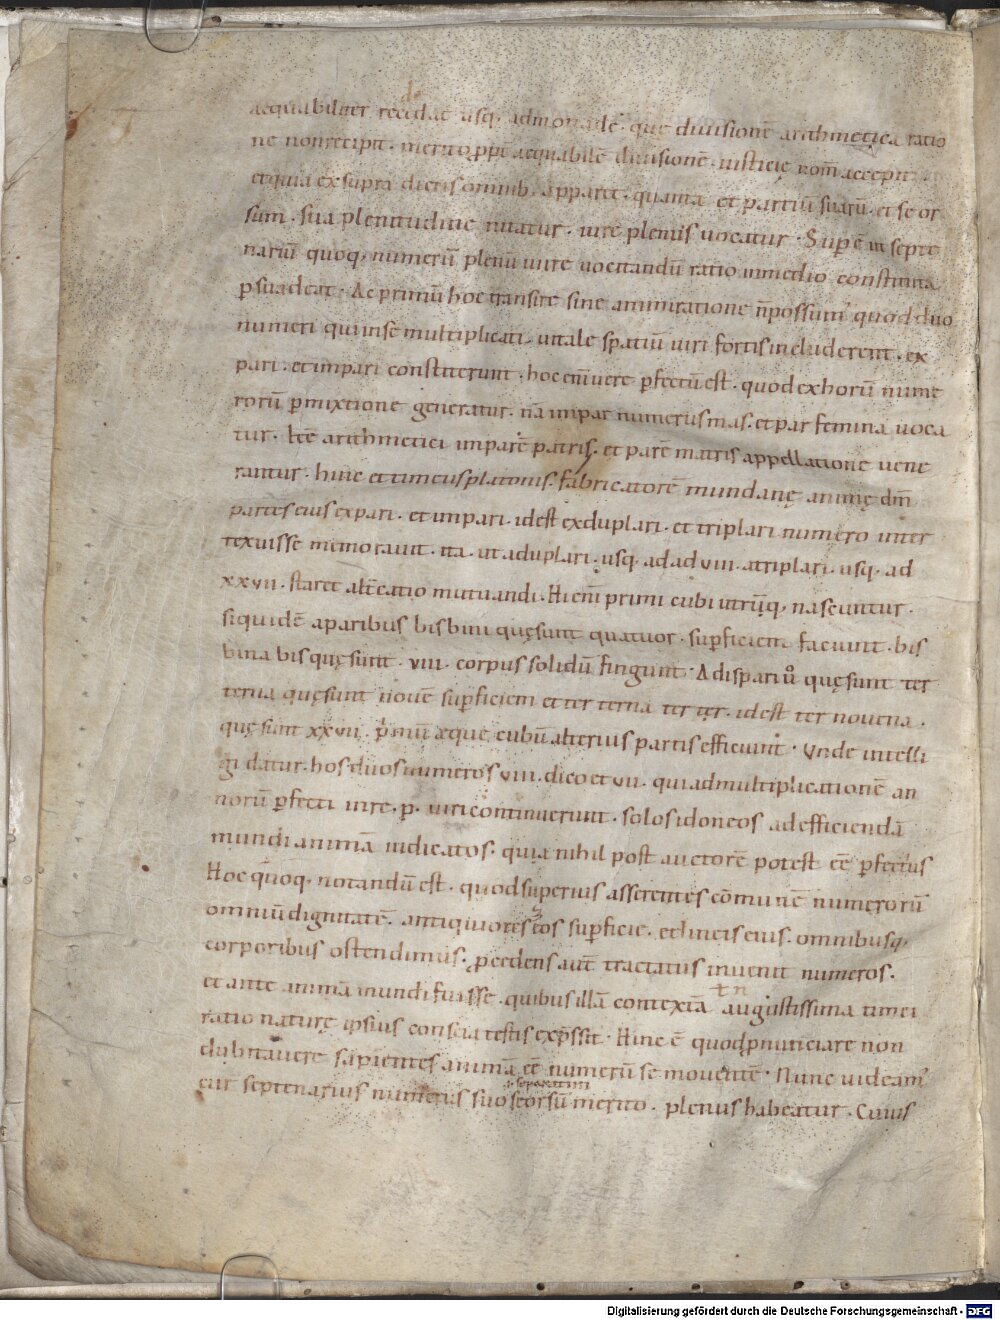 aequabiliter recidat usq; admonadē. quę diuisionē arithmetica ratio
ne nonrecipit. merito ppt̄ aequabilē diuisionē. iusticię nom̄ accepit.
etquia exsupra dictis omnib; apparet. quanta et partiū suarū. et se or
sum. sua plenitudine nitatur. iure plenus uocatur. Supē ut septe
nariū quoq; numerū plenū iure uocitandū ratio inmedio constituta
psuadeat. Ac primū hoc transire sine ammiratione n̄possum᾽ quod duo
numeri quiinse multiplicati. uitale spatiū uiri fortisincluderent. ex
pari. etimpari constiterunt. hoc eni uere pfectū est. quodexhorū nume
rorū pmixtione generatur. nā impar numerusmas. etpar femina uoca
tur. Itē arithmetici imparē patris. et parē matris appellatione uene
rantur. hinc et timeusplatonis. fabricatorē mundanę animę dm̄
partes eius expari. et impari. idest exduplari. et triplari numero inter
texuisse memorauit. ita. ut aduplari. usq; ad ad viii. atriplari. usq; ad
xxvii. staret alt̄catio mutuandi. Hieni primi cubi utrūq; nascuntur.
siquidē aparibus bisbini quęsunt quatuor. supficiem faciunt. bis
bina bis quęsunt. viii. corpus solidū fingunt. Adispari ů quęsunt ter
terna quęsunt nouē supficiem et ter terna ter ter. idest ter nouena.
quę sunt xxvii. pmū aeque cubū alterius partis efficiunt. Unde intelli
gi datur. hos duos numeros viii. dico et vii. qui admultiplicationē an
norū pfecti uire. p. uiri continuerunt. solos idoneos ad efficiendā
mundi animā iudicatos. quia nihil post auctorē potest eē pfectius
Hoc quoq; notandū est. quod superius asserentes cōmunē numerorū
omniū dignitatē. antiquiores eos supficie. et lineis eius. omnibusq;
corporibus ostendimus. pcedens aut̄ tractatus inuenit numeros.
et ante animā mundi fuisse. quibus illā contexā augustissima timei
ratio naturę ipsius conscia testis exp̄ssit. Hinc ē quodpnunciare non
dubitauere sapientes animā eē numerū se mouentē. Nunc uideam᾽
separatim
cur septenarius numerus suo seorsū merito. plenus habeatur. Cuius
Digitalisierung gefördert durch die Deutsche Forschungsgemeinschaft - DFG